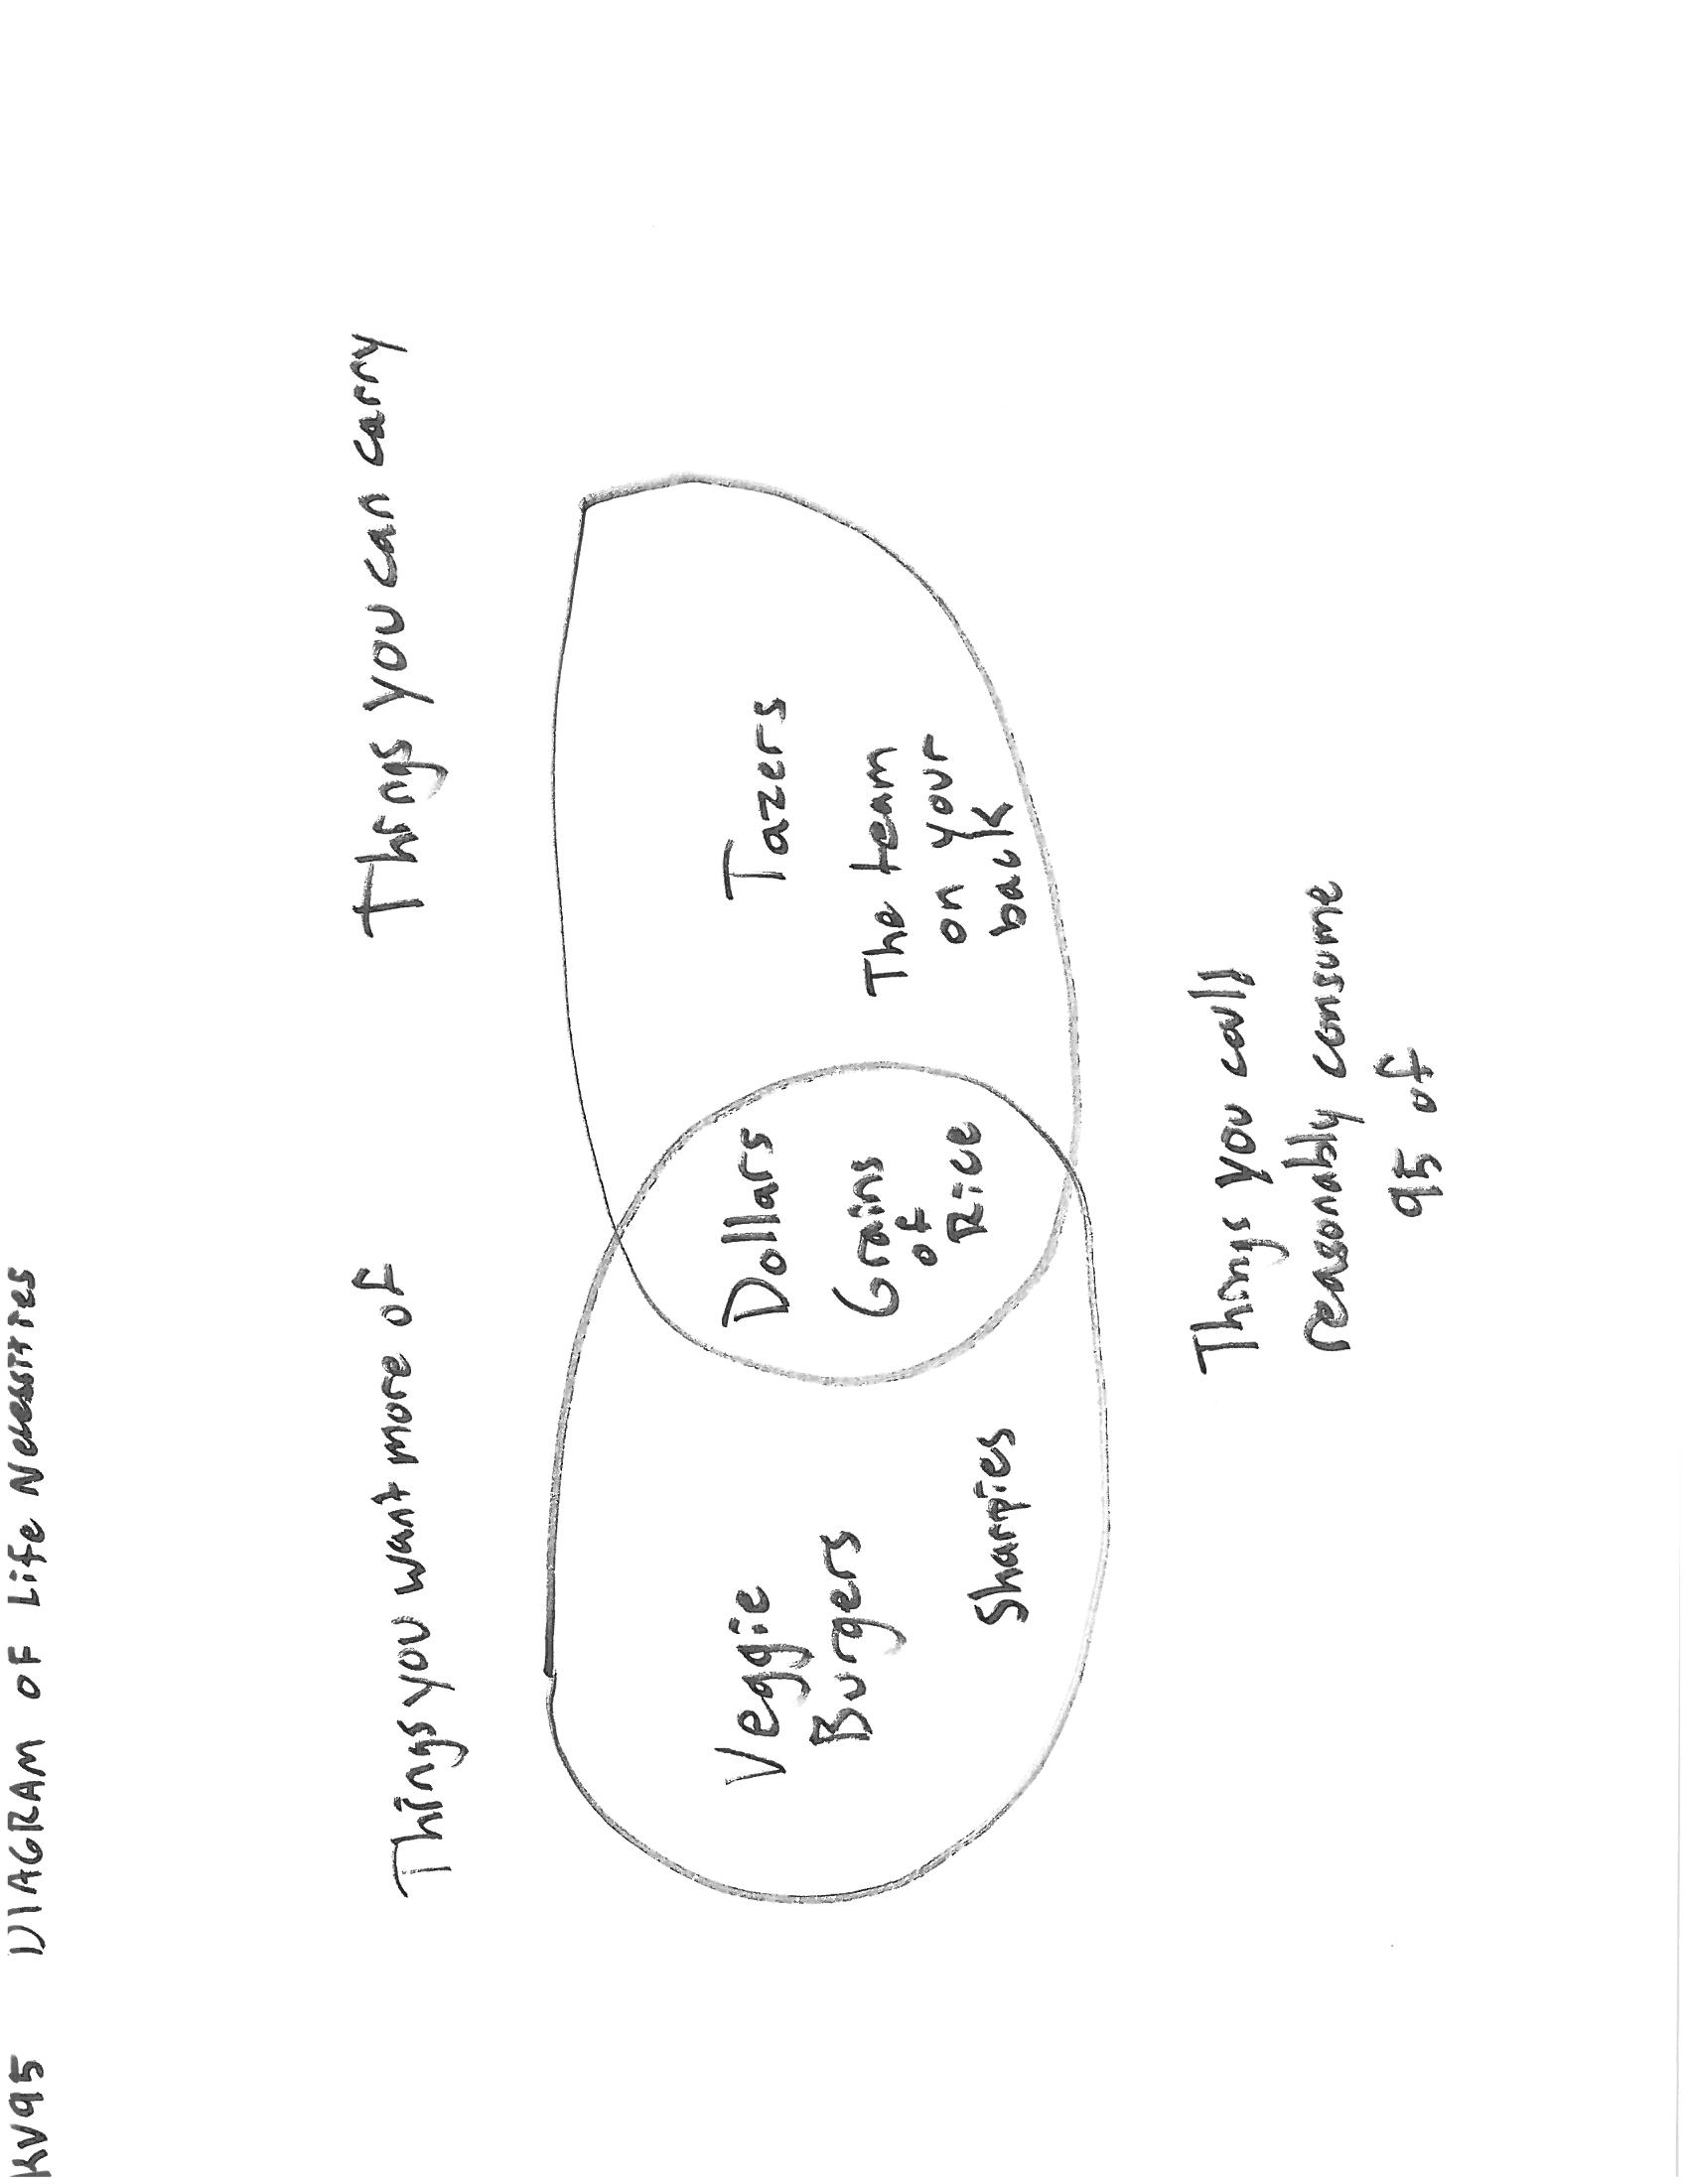 KV95 DIAGRAM OF Life Necessities
Things you want more of
Things you can carry
Veggie
Burgers
Sharpies
Dollars
Grains
of
Rice
Tazers
The team
on your
back
Things you call
reasonably consume
95 of